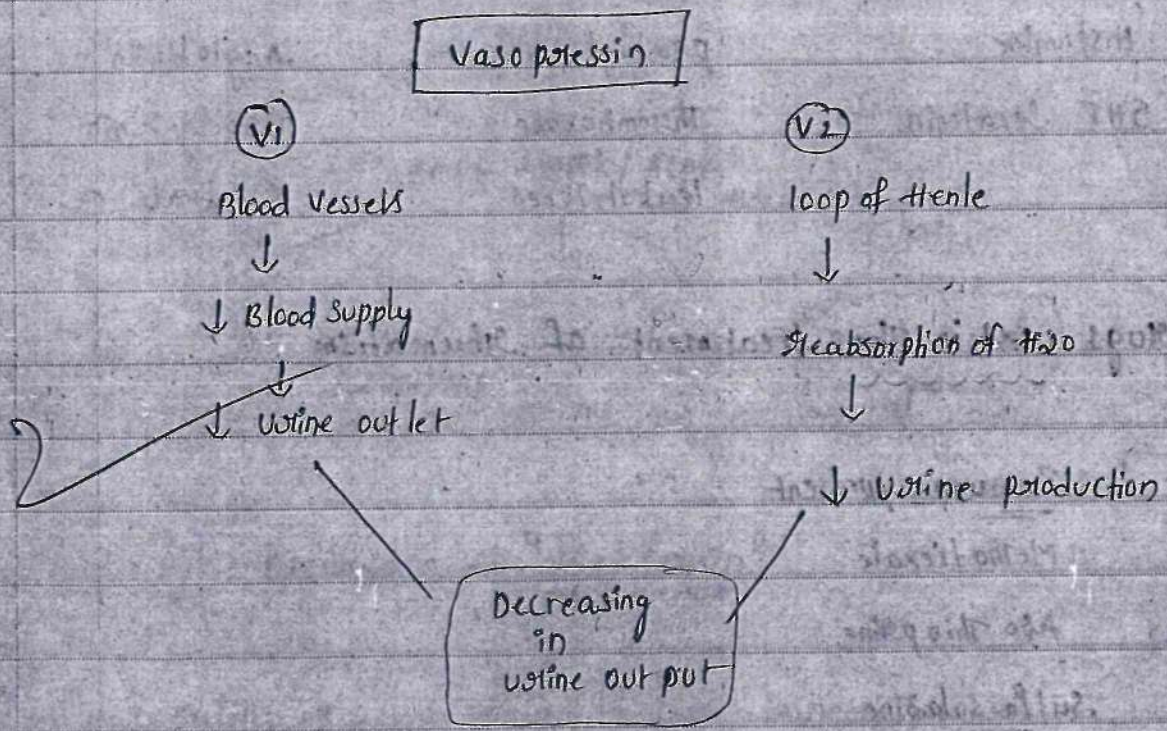 Vasopressin
V1
Blood Vessels
↓
↓ Blood Supply
↓
↓ Urine outlet
V2
loop of Henle
↓
Reabsorption of H20
↓
↓ Urine production
Decreasing
in
urine out put